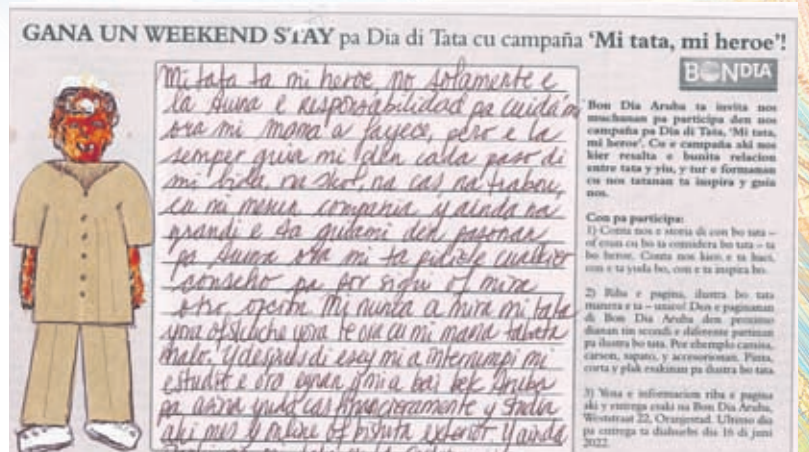 GANA UN WEEKEND STAY pa Dia di Tata cu campaña 'Mi tata, mi heroe'!
BONDIA
Mi tata ta mi heroe, no solamente e
la suma e responsabilidad pa cuida mi
ora mi mama a fayece, pero e la
semper guia mi den cada paso di
mi bida, na skol, na cas, na trabou,
cu mi mesun compania y ainda na
grandi e ta guiami den pasonan
pa suma ora mi ta pidiele cualkier
conseho pa por sigui of mira
otro opcion. Mi nunca a mira mi tata
yora of stubche yora te ora cu mi mama tabata
malo. Y despues di esey mi a interrumpi mi
estudio e ora ey mi a bai bek Aruba
pa asina yuda cas financieramente y studia
aki mes y online of bishita exterior. Y ainda
Bon Dia Aruba ta invita nos
muchanan pa participa den nos
campaña pa Dia di Tata, 'Mi tata,
mi heroe'. Cu e campaña aki nos
kier resalta e bunita relacion
entre tata y yiu, y tur e formanan
cu nos tatanan ta inspira y guia
nos.
Con pa participa:
1) Conta nos e storia di con bo tata –
of esun cu bo ta considera bo tata – ta
bo heroe. Conta nos kico e ta haci,
con e ta yuda bo, con e ta inspira bo.
2) Riba e pagina, ilustra bo tata
manera e ta – unico! Den e paginanan
di Bon Dia Aruba den proximo
dianan tin scondi e diferente partinan
pa ilustra bo tata. Por ehemplo camisa,
carson, sapato, y accesorionan. Pinta,
corta y plak esakinan pa ilustra bo tata.
3) Yena e informacion riba e pagina
aki y entrega esaki na Bon Dia Aruba,
Weststraat 22, Oranjestad. Ultimo dia
pa entrega ta diahuebs dia 16 di juni
2022.